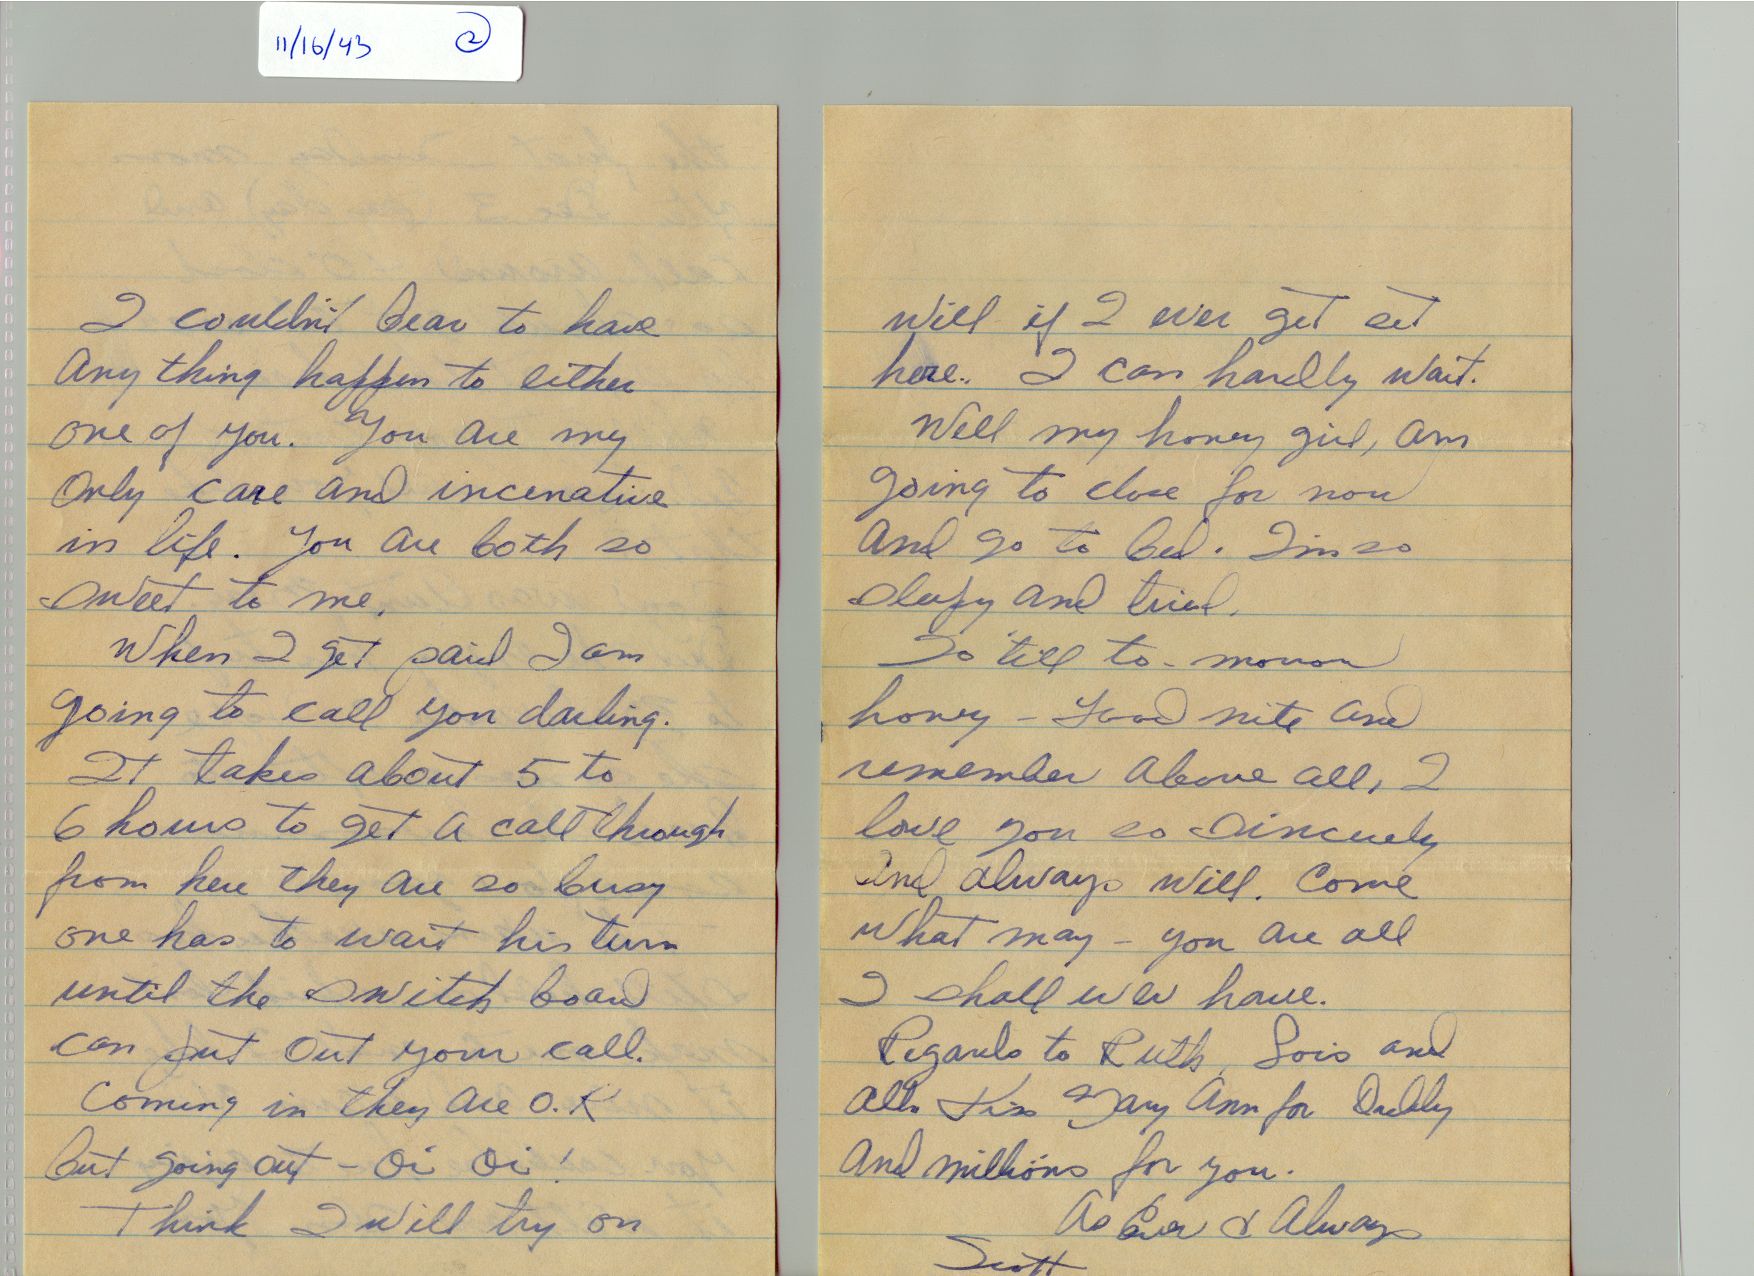 11/16/43 2
I couldn't bear to have
any thing happen to either
one of you. You are my
only care and incenative
in life. You are both so
sweet to me.
When I get paid I am
going to call you darling.
It takes about 5 to
6 hours to get a call through
from here they are so busy
one has to wait his turn
until the switch board
can put out your call.
Coming in they are O.K
but going out - Oi Oi!
Think I will try on
will if I ever get set
here. I can hardly wait.
Well my honey girl, am
going to close for now
and go to bed. I'm so
sleepy and tired.
So 'till to-morrow
honey - Good nite and
remember above all, I
love you so sincerely
and always will. Come
what may - you are all
I shall ever have.
Regards to Ruth, Lois and
all. Kiss Mary Ann for Daddy
and millions for you.
As Ever & Always
Scott